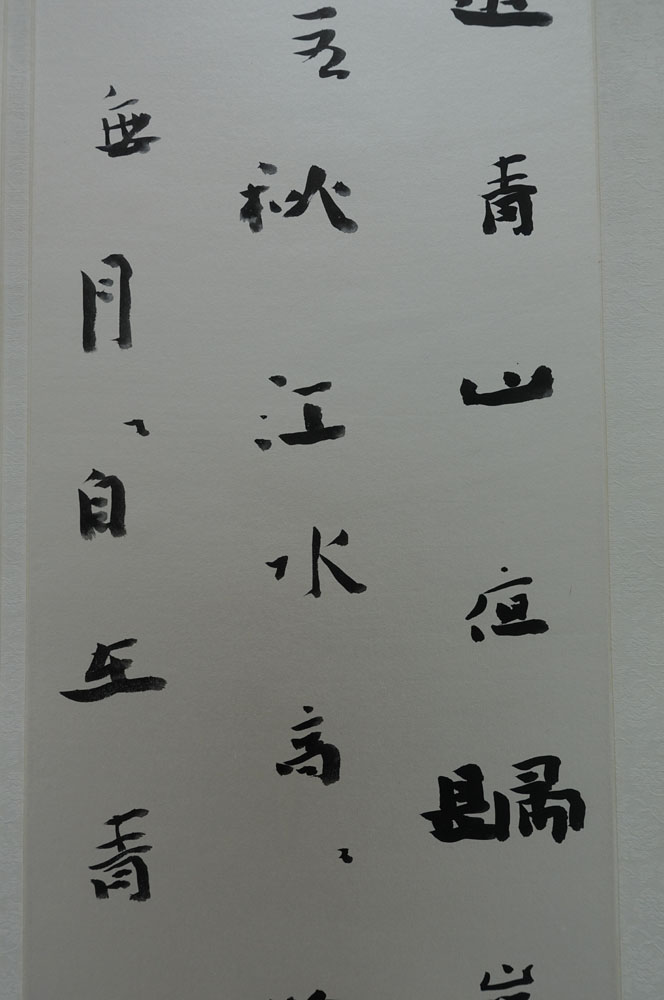 青山歸
五秋江水高、
無月、自在青